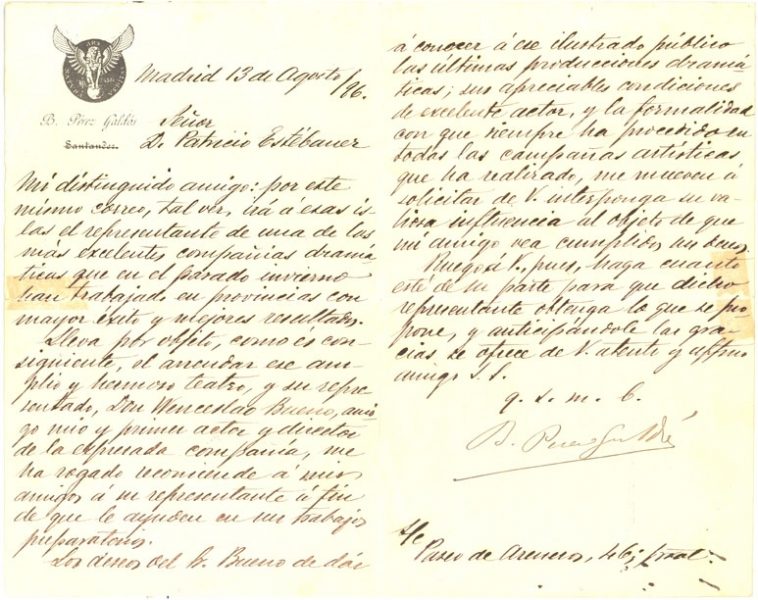 ARS
Madrid 13 de Agosto/96.
B. Pérez Galdós
Santander
Señor
D. Patricio Estébanez
Mi distinguido amigo: por este
mismo correo, tal vez, irá á esas is-
las el representante de una de las
más excelentes compañías dramá-
ticas que en el pasado invierno
han trabajado en provincias con
mayor éxito y mejores resultados.
Lleva por objeto, como és con-
siguiente, el arrendar ese am-
plio y hermoso teatro, y su repre-
sentado, Don Wenceslao Bueno, ami-
go mio y primer actor y director
de la expresada compañía, me
ha rogado recomiende á mis
amigos á su representante á fin
de que le ayuden en sus trabajos
preparatorios.
Los deseos del Sr. Bueno de dár
á conocer á ese ilustrado público
las últimas producciones dramá-
ticas; sus apreciables condiciones
de excelente actor, y la formalidad
con que siempre ha procedido en
todas las campañas artísticas
que ha realizado, me mueven á
solicitar de V. interponga su va-
liosa influencia al objeto de que
mi amigo vea cumplidos sus deseos.
Ruego á V., pues, haga cuanto
esté de su parte para que dicho
representante obtenga lo que se pro-
pone, y anticipándole las gra-
cias, se ofrece de V. atento y affmo
amigo S. S.
q. s. m. b.
B. Perez Galdós
S/c
Paseo de Areneros, 46; pral.